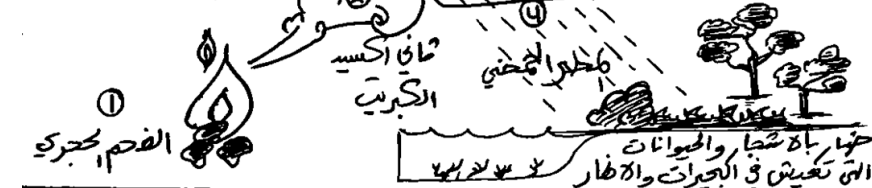 ④
ثاني أكسيد
الكبريت
المطر الحمضي
①
الفحم الحجري
بالاشجار والحيوانات
التي تعيش في البحيرات والانهار